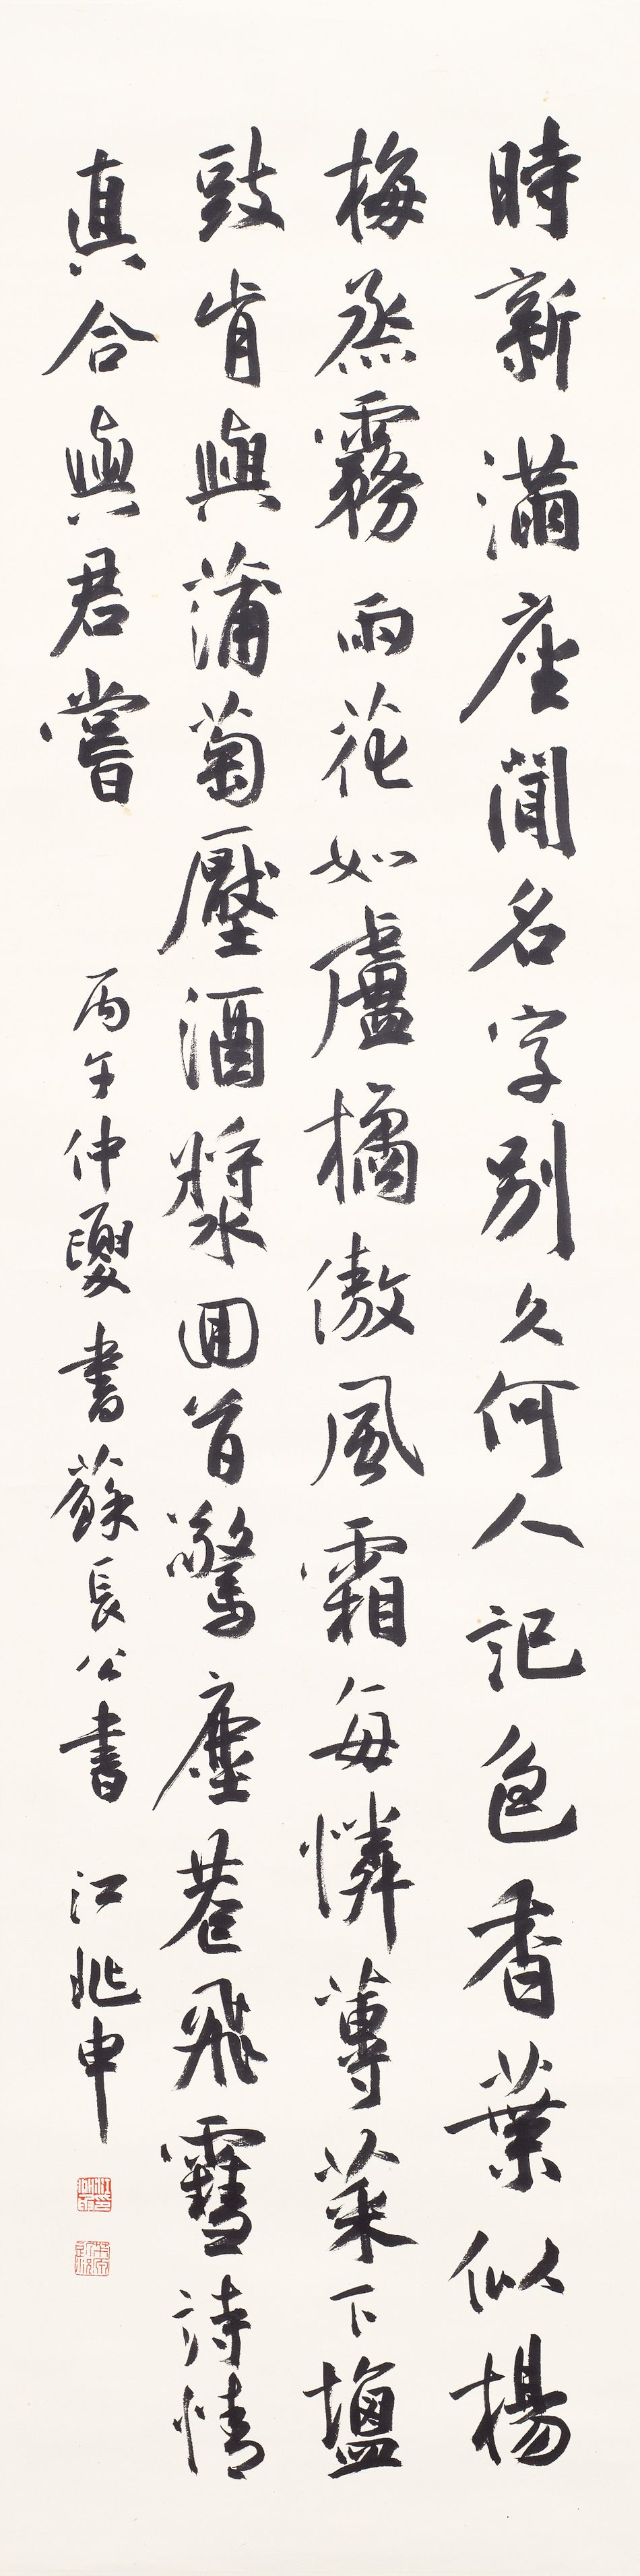 時新滿座聞名字別久何人記色香葉似楊
梅烝霧雨花如盧橘傲風霜每憐蓴菜下塩
豉肯與蒲萄壓酒漿回首驚塵卷飛雪詩情
真合與君嘗
丙午仲夏書蘇長公書 江兆申